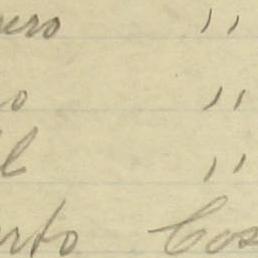 ero ,,
o ,,
l ,,
rto Cos